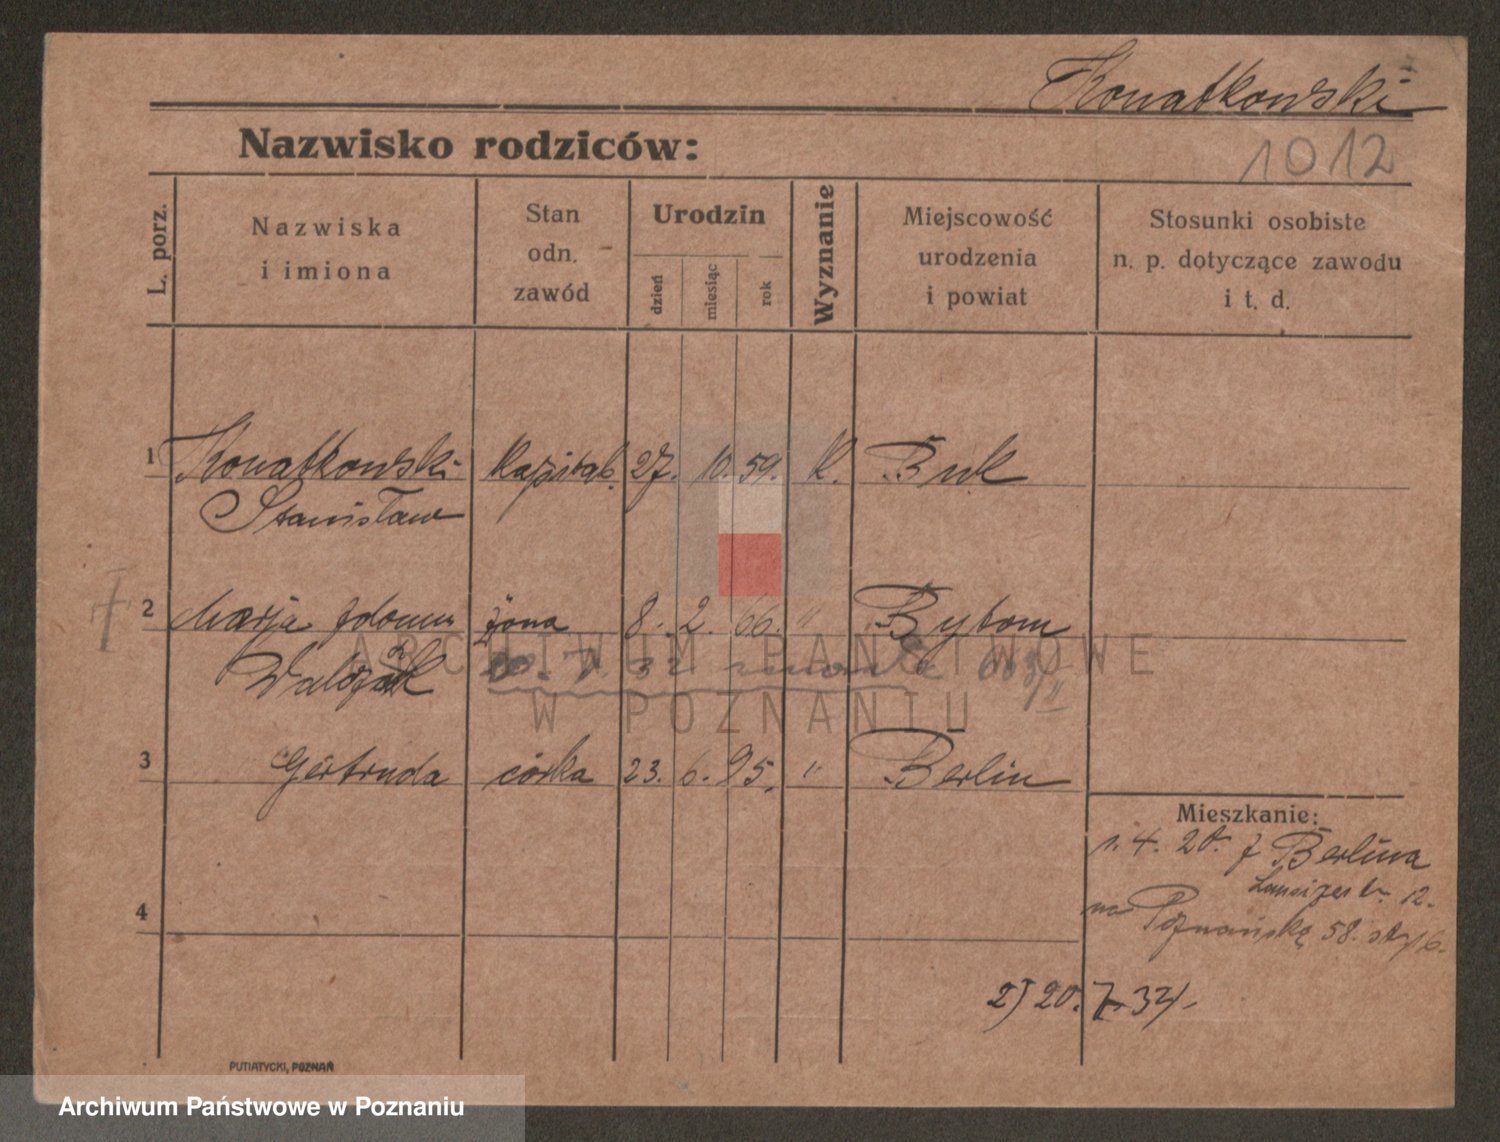 Kowatkowski
Nazwisko rodziców:
1012
L. porz.
Nazwiska
i imiona
Stan
odn.
zawód
Urodzin
dzień
miesiąc
rok
Wyznanie
Miejscowość
urodzenia
i powiat
Stosunki osobiste
n. p. dotyczące zawodu
i t. d.
1 Kowatkowski kapital. 27. 10. 59. K. Buk
Stanisław
2 Marja żona 8. 2. 66. " Bytom
3 Gertruda córka 23. 6. 95. " Berlin
Mieszkanie:
1. 4. 20. z Berlina
12.
na Poznańską 58.
4
2) 20. 7. 32.
PUTIATYCKI, POZNAŃ
ARCHIWUM PAŃSTWOWE
W POZNANIU
Archiwum Państwowe w Poznaniu